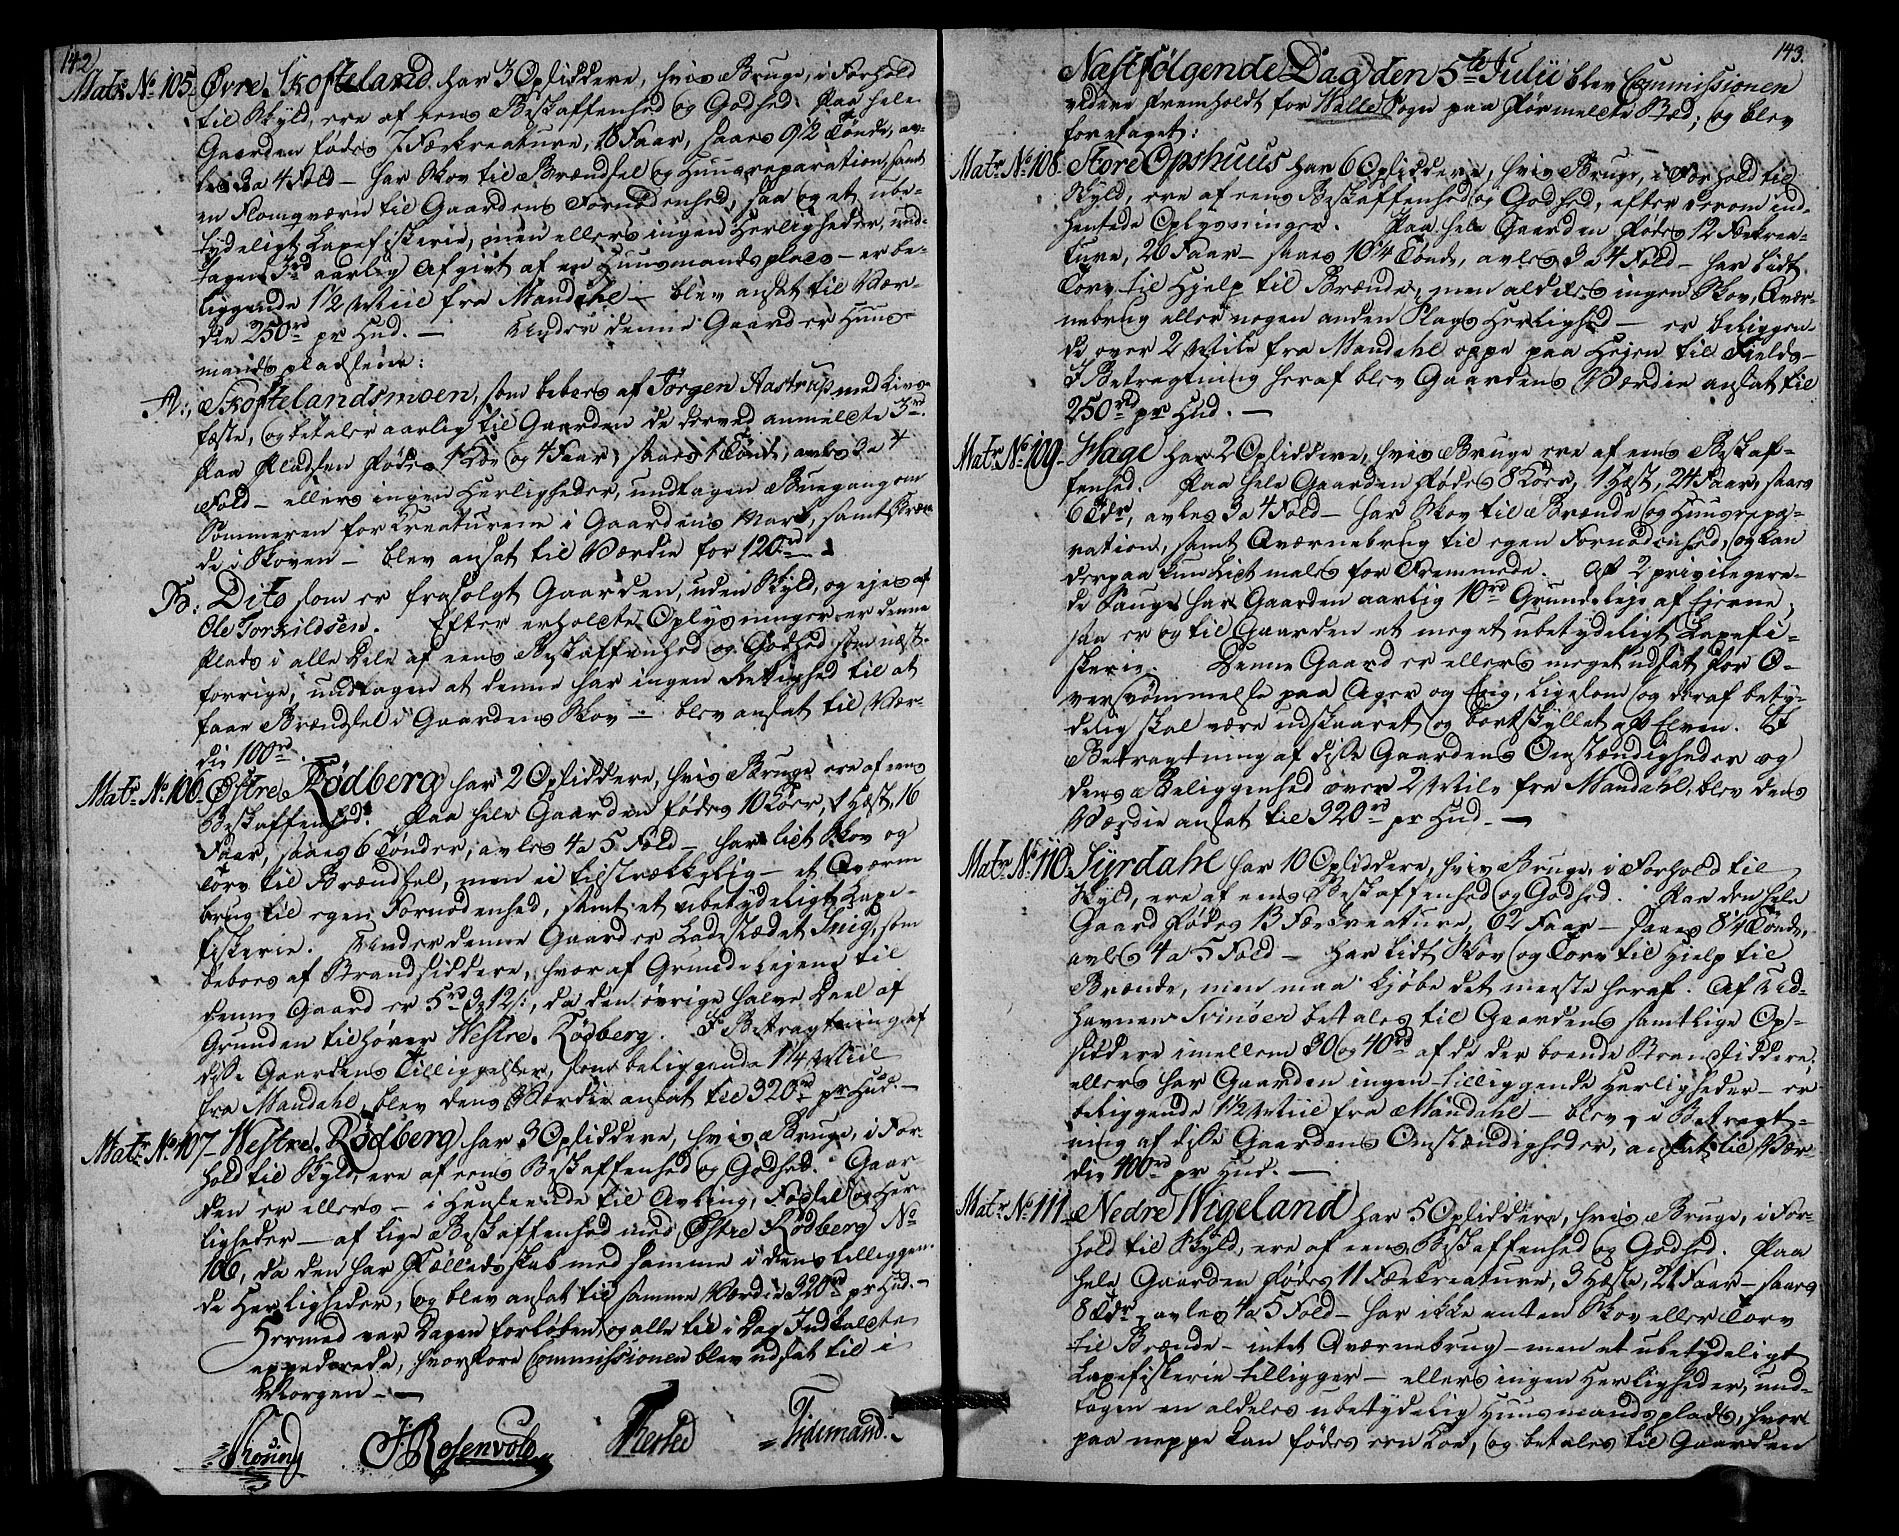 142.
Matr: No. 105. Øvre Skofteland har 3 Opsiddere, hvis Bruge, i Forhold
til Skyld, ere af eens Beskaffenhed og Godhed. Paa hele
Gaarden fødes 7 Fækreature, 18 Faar, saaes 9 1/2 Tønde, av-
les 3 a 4 Fold – har Skov til Brændsel og Huusreparation, samt
en Flomqværn til Gaardens Fornødenhed, saa og et ube-
tydeligt Laxefiskerie, men ellers ingen Herligheder, und-
tagen 3rd aarlig Afgivt af en Huusmandsplads – er be-
liggende 1 1/2 Miil fra Mandahl – blev ansat til Vær-
die 250rd pr Hud. – Under denne Gaard er Huus-
mandspladsene:
A:, Skoftelandsmoen, som beboes af Jørgen Aastrup med Livs-
fæste, og betaler aarlig til Gaarden de derved anmeldte 3rd.
Paa Pladsen fødes 1 Koe og 4 Faar, saaes 1 Tønde, avles 3 a 4
Fold – ellers ingen Herligheder, undtagen Buegang om
Sommeren for Kreaturene i Gaardens Mark, samt Bræn-
de i Skoven – blev ansat til Værdie for 120rd
B: Dito som er frasolgt Gaarden, uden Skyld, og ejes af
Ole Torkildsen. Efter erholdte Oplysninger er denne
Plads i alle Dele af eens Beskaffenhed og Godhed som næst-
forrige, undtagen at denne har ingen Rettighed til at
faae Brændsel i Gaardens Skov – blev ansat til Vær-
die 100rd.
Matr: No. 106. Østre Rødberg har 2 Opsiddere, hvis Bruge ere af eens
Beskaffenhed. Paa hele Gaarden fødes 10 Køer, 1 Hæst, 16
Faar, saaes 6 Tønder, avles 4 a 5 Fold – har lidt Skov og
Torv til Brændsel, men ei tilstrækkelig – et Qværne
brug til egen Fornødenhed, samt et ubetydeligt Laxe-
fiskerie. Under denne Gaard er Ladestædet Snig, som
beboes af Strandsiddere, hvoraf Grundelejene til
denne Gaard er 5rd 3 12, da den øvrige halve Deel af
Grunden tilhører Westre Rødberg. I Betragtning af
disse Gaardens Tilliggelser, som beliggende 1 1/4 Miil
fra Mandahl, blev dens Værdie ansat til 320rd pr Hud. –
Matr: No. 107 – Westre Rødberg har 3 Opsiddere, hvis Bruge, i For-
hold til Skyld, ere af eens Beskaffenhed og Godhed. Gaar-
den er ellers – i Henseende til Avling, Fødsel og Her-
ligheder – af lige Beskaffenhed med Østre Rødberg No
106, da den har Fælledsskab med samme i dens tilliggen-
de Herligheder, og blev ansat til samme Værdie 320rd pr Hud –
Hermed var Dagen forløben, og alle til i Dag Indkaldte
expederede, hvorfore Commissionen blev udsat til i
Morgen –
J Rosenvold Tidemand.
143.
Næstfølgende Dag den 5te Julii blev Commissionen
videre fremholdt for Halle Sogn paa Førmeldte Stæd; og blev
foretaget:
Matr: No. 108. Store Opshuus har 6 Opsiddere, hvis Bruge, i Forhold til
Skyld, ere af eens Beskaffenhed og Godhed, efter derom ind-
hentede Oplysninger. Paa hele Gaarden fødes 12 Fækrea-
ture, 20 Faar – saaes 10 1/4 Tønde, avles 3 a 4 Fold – har lidt
Torv til Hjelp til Brænde, men aldeles ingen Skov, Qvær-
nebrug eller nogen anden Slags Herlighed – er beliggen-
de over 2 Mile fra Mandahl oppe paa Hejen til Fields –
I Betragtning heraf blev Gaardens Værdie ansat til
250rd pr Hud. –
Matr: No. 109 – Hage har 2 Opsiddere, hvis Bruge ere af eens Beskaf-
fenhed. Paa hele Gaarden fødes 8 Køer, 1 Hæst, 24 Faar, saaes
6 Tdr, avles 3 a 4 Fold – har Skov til Brænde og Huusrepa-
ration, samt Qværnebrug til egen Fornødenhed, og kan
derpaa kun lidt males for Fremmede. Af 2 privilegere-
de Sauge har Gaarden aarlig 10rd Grundeleje af Eierne,
saa er og til Gaarden et meget ubetydeligt Laxefi-
skerie. Denne Gaard er ellers meget udsat for O-
versvømmelse paa Ager og Eng, ligesom og deraf bety-
delig skal være udskaaret og bortskyllet af Elven. I
Betragtning af disse Gaardens Omstændigheder og
dens Beliggenhed over 2 Mile fra Mandahl, blev dens
Værdie ansat til 320rd pr Hud. –
Matr: No. 110. Syrdahl har 10 Opsiddere, hvis Bruge, i Forhold til
Skyld, ere af eens Beskaffenhed og Godhed. Paa den hele
Gaard fødes 13 Fækreature, 62 Faar – saaes 8 1/4 Tønde,
avles 4 a 5 Fold – har lidt Skov og Torv til Hjelp til
Brænde, men maa kjøbe det meeste heraf. Af Ud-
havnen Svinøer betales til Gaardens samtlige Op-
siddere imellem 30 og 40rd af de der boende Strandsiddere,
ellers har Gaarden ingen tilliggende Herligheder – er
beliggende 1 1/2 Miil fra Mandahl – blev, i Betragt-
ning af disse Gaardens Omstændigheder, ansat til Vær-
die 400rd pr Hud. –
Matr: No. 111. Nedre Wigeland har 5 Opsiddere, hvis Bruge, i For-
hold til Skyld, ere af eens Beskaffenhed og Godhed. Paa
hele Gaarden fødes 11 Fækreature, 3 Hæste, 21 Faar – saaes
8 Tdr, avles 4 a 5 Fold – har ikke enten Skov eller Torv
til Brænde – intet Qværnebrug – men et ubetydeligt
Laxefiskerie tilligger – ellers ingen Herligheder, und-
tagen en aldeles ubetydelig Huusmandsplads, hvor
paa neppe kan fødes een Koe, og betales til Gaarden